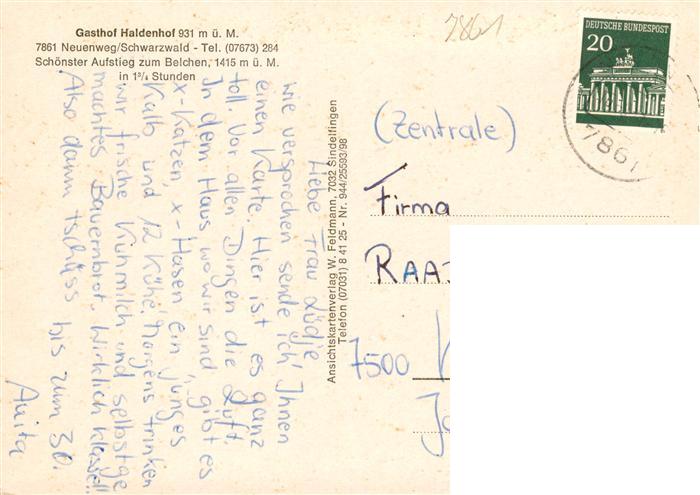 Gasthof Haldenhof 931 m ü. M.
7861 Neuenweg/Schwarzwald - Tel. (07673) 284
Schönster Aufstieg zum Belchen, 1415 m ü. M.
in 1³/₄ Stunden
Liebe Frau Lüdje,
wie versprochen sende ich Ihnen
einen Karte. Hier ist es ganz
toll. Vor allen Dingen die Luft.
In dem Haus wo wir sind, gibt es
x-Katzen, x-Hasen ein junges
Kalb und 12 Kühe. Morgens trinken
wir frische Kuhmilch und selbstge
machtes Bauernbrot. Wirklich klasse!!
Also dann tschüss bis zum 30.
Anita
Ansichtskartenverlag W. Feldmann, 7032 Sindelfingen
Telefon (07031) 8 41 25 - Nr. 944/25593/98
7861
DEUTSCHE BUNDESPOST
20
7861
(Zentrale)
Firma
RAA
7500